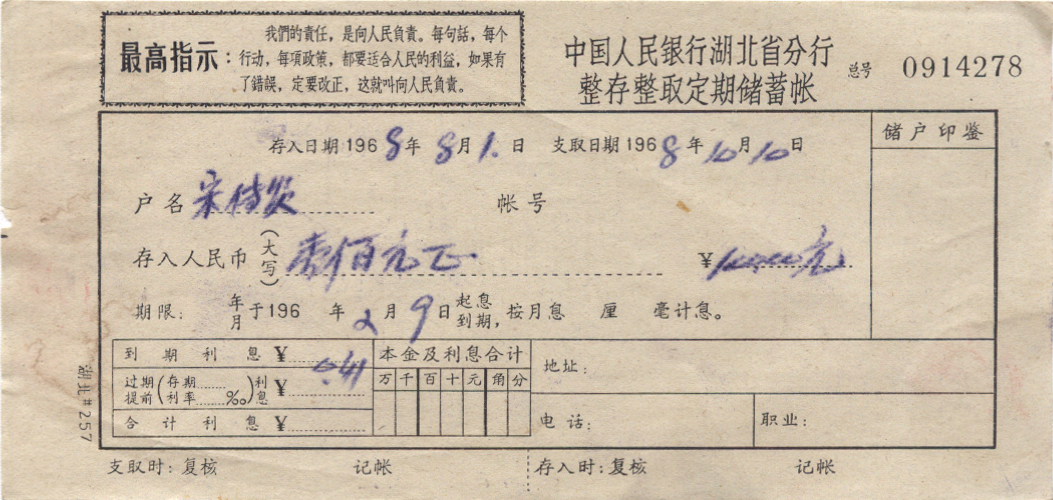 最高指示:
我們的責任,是向人民負責。每句話,每个
行动,每項政策,都要适合人民的利益,如果有
了錯誤,定要改正,这就叫向人民負責。
中国人民银行湖北省分行
整存整取定期储蓄帐
总号 0914278
存入日期1968年8月1日 支取日期1968年10月10日
储户印鉴
户名 宋 帐号
存入人民币(大写) 壹佰元正 ¥ 元
期限: 年月 于196 年2月9日 起息到期, 按月息 厘 毫计息。
到期利息 ¥ 0.41
过期提前(存期利率 ‰)利息 ¥
合计利息 ¥
本金及利息合计
万 千 百 十 元 角 分
地址:
电话: 职业:
湖北#257
支取时:复核 记帐 存入时:复核 记帐